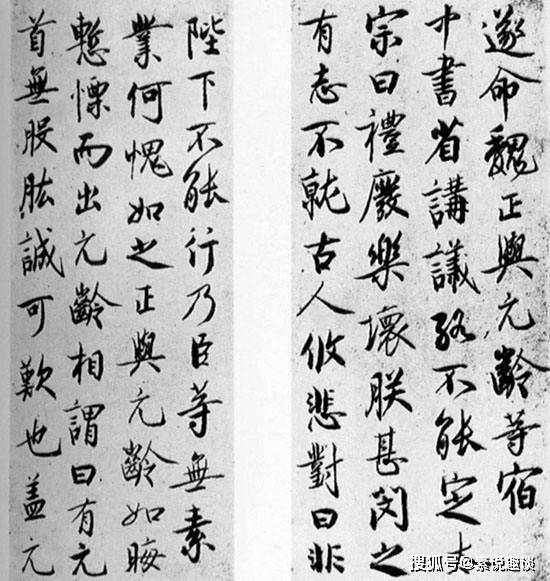 遂命魏正與元齡等宿
中書省講議終不能定太
宗曰禮廢樂壞朕甚閔之
有志不就古人攸悲對曰非
陛下不能行乃臣等無素
業何愧如之正與元齡如晦
慙慄而出元齡相謂曰有元
首無股肱誠可歎也盖元
搜狐号@素说趣谈